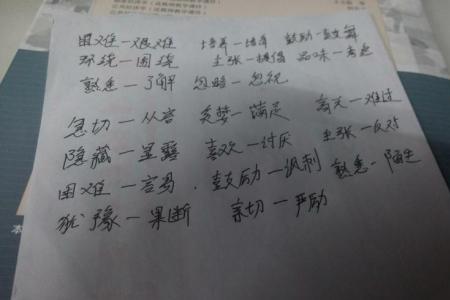 困难—艰难 培养—培育 鼓励—鼓舞
环绕—围绕 主张—提倡 品味—
熟悉—了解 忽略—忽视
急切—从容 美梦—满足 —难过
隐藏—显露 喜欢—讨厌 主张—反对
困难—容易 鼓励—讽刺 熟悉—陌生
犹豫—果断 亲切—严厉
本